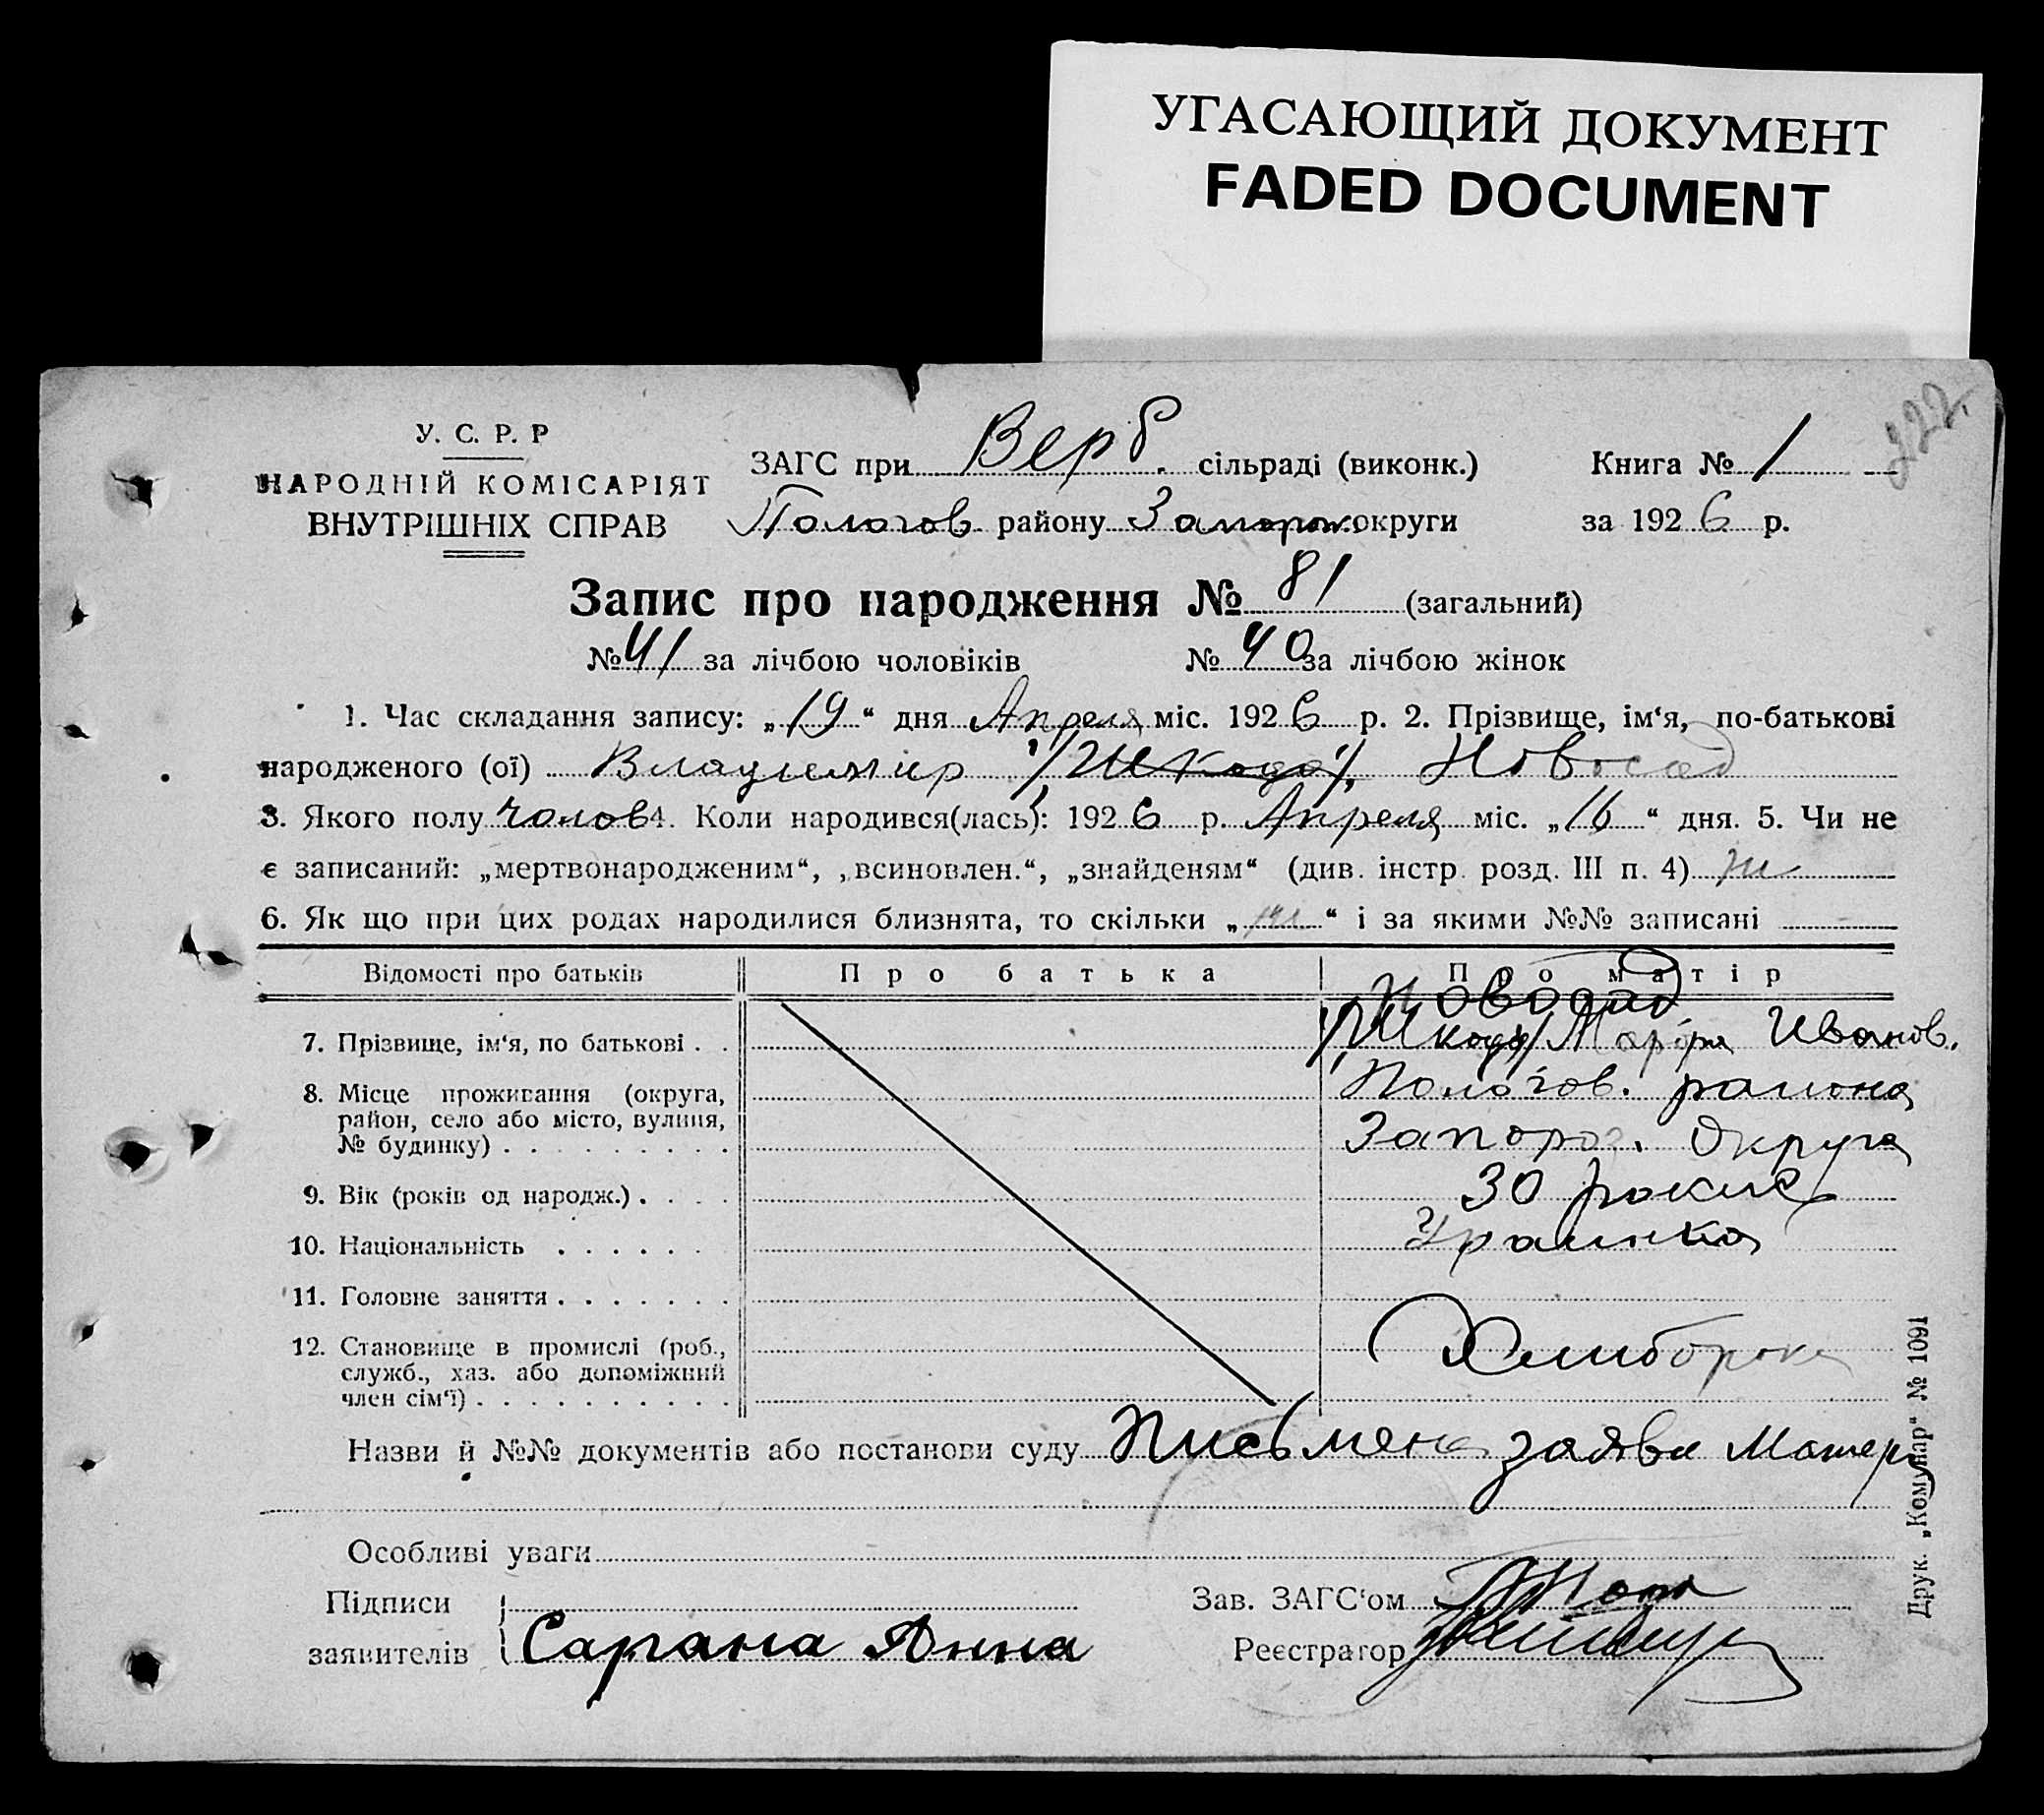 УГАСАЮЩИЙ ДОКУМЕНТ
FADED DOCUMENT
222.
У. С. Р. Р
НАРОДНІЙ КОМІСАРІЯТ
ВНУТРІШНІХ СПРАВ
ЗАГС при Верб. сільраді (виконк.)
Пологов району Запорож. округи
Книга № 1
за 1926 р.
Запис про народження № 81 (загальний)
№ 41 за лічбою чоловіків № 40 за лічбою жінок
1. Час складання запису: „19“ дня Апреля міс. 1926 р. 2. Прізвище, ім‘я, по-батькові
народженого (ої) Владимир /Шкода/. Новосад
3. Якого полу чолов 4. Коли народився(лась): 1926 р. Апреля міс. „16“ дня. 5. Чи не
є записаний: „мертвонародженим“, „всиновлен.“, „знайденям“ (див. інстр. розд. III п. 4) ні
6. Як що при цих родах народилися близнята, то скільки „ “ і за якими №№ записані
Відомості про батьків Про батька Про матір
Новосад
7. Прізвище, ім‘я, по батькові . . /Шкода/ Иванов.
8. Місце проживання (округа, Пологов. района
район, село або місто, вулиця,
№ будинку) . . . . . . . . . Запорож. Округа
9. Вік (років од народж.) . . . . 30 рокив
10. Національність . . . . . . Украинка
11. Головне заняття . . . . . . .
12. Становище в промислі (роб., Хлиборобка
служб., хаз. або допоміжний
член сім‘ї) . . . . . . . . . .
Назви й №№ документів або постанови суду Письмена заява Матери
Особливі уваги
Підписи
заявителів Сарана Анна
Зав. ЗАГС‘ом
Реєстратор
Друк. „Комунар“ № 1091